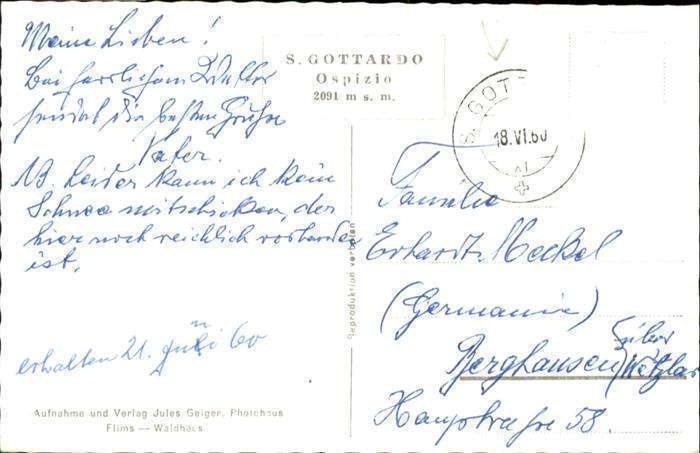 Meine Lieben!
Bei herrlichem Wetter
sendet die besten Grüße
Vater.
NB. Leider kann ich kein
Schnee mitschicken, der
hier noch reichlich vorhanden
ist.
erhalten 21. Juni 60
Aufnahme und Verlag Jules Geiger, Photohaus
Flims — Waldhaus
S. GOTTARDO
Ospizio
2091 m s. m.
Reproduktion verboten
S. GOTT
18.VI.60
Familie
Erhardt Meckel
(Germania)
Berghausen
über
Wetzlar
Hauptstraße 58.